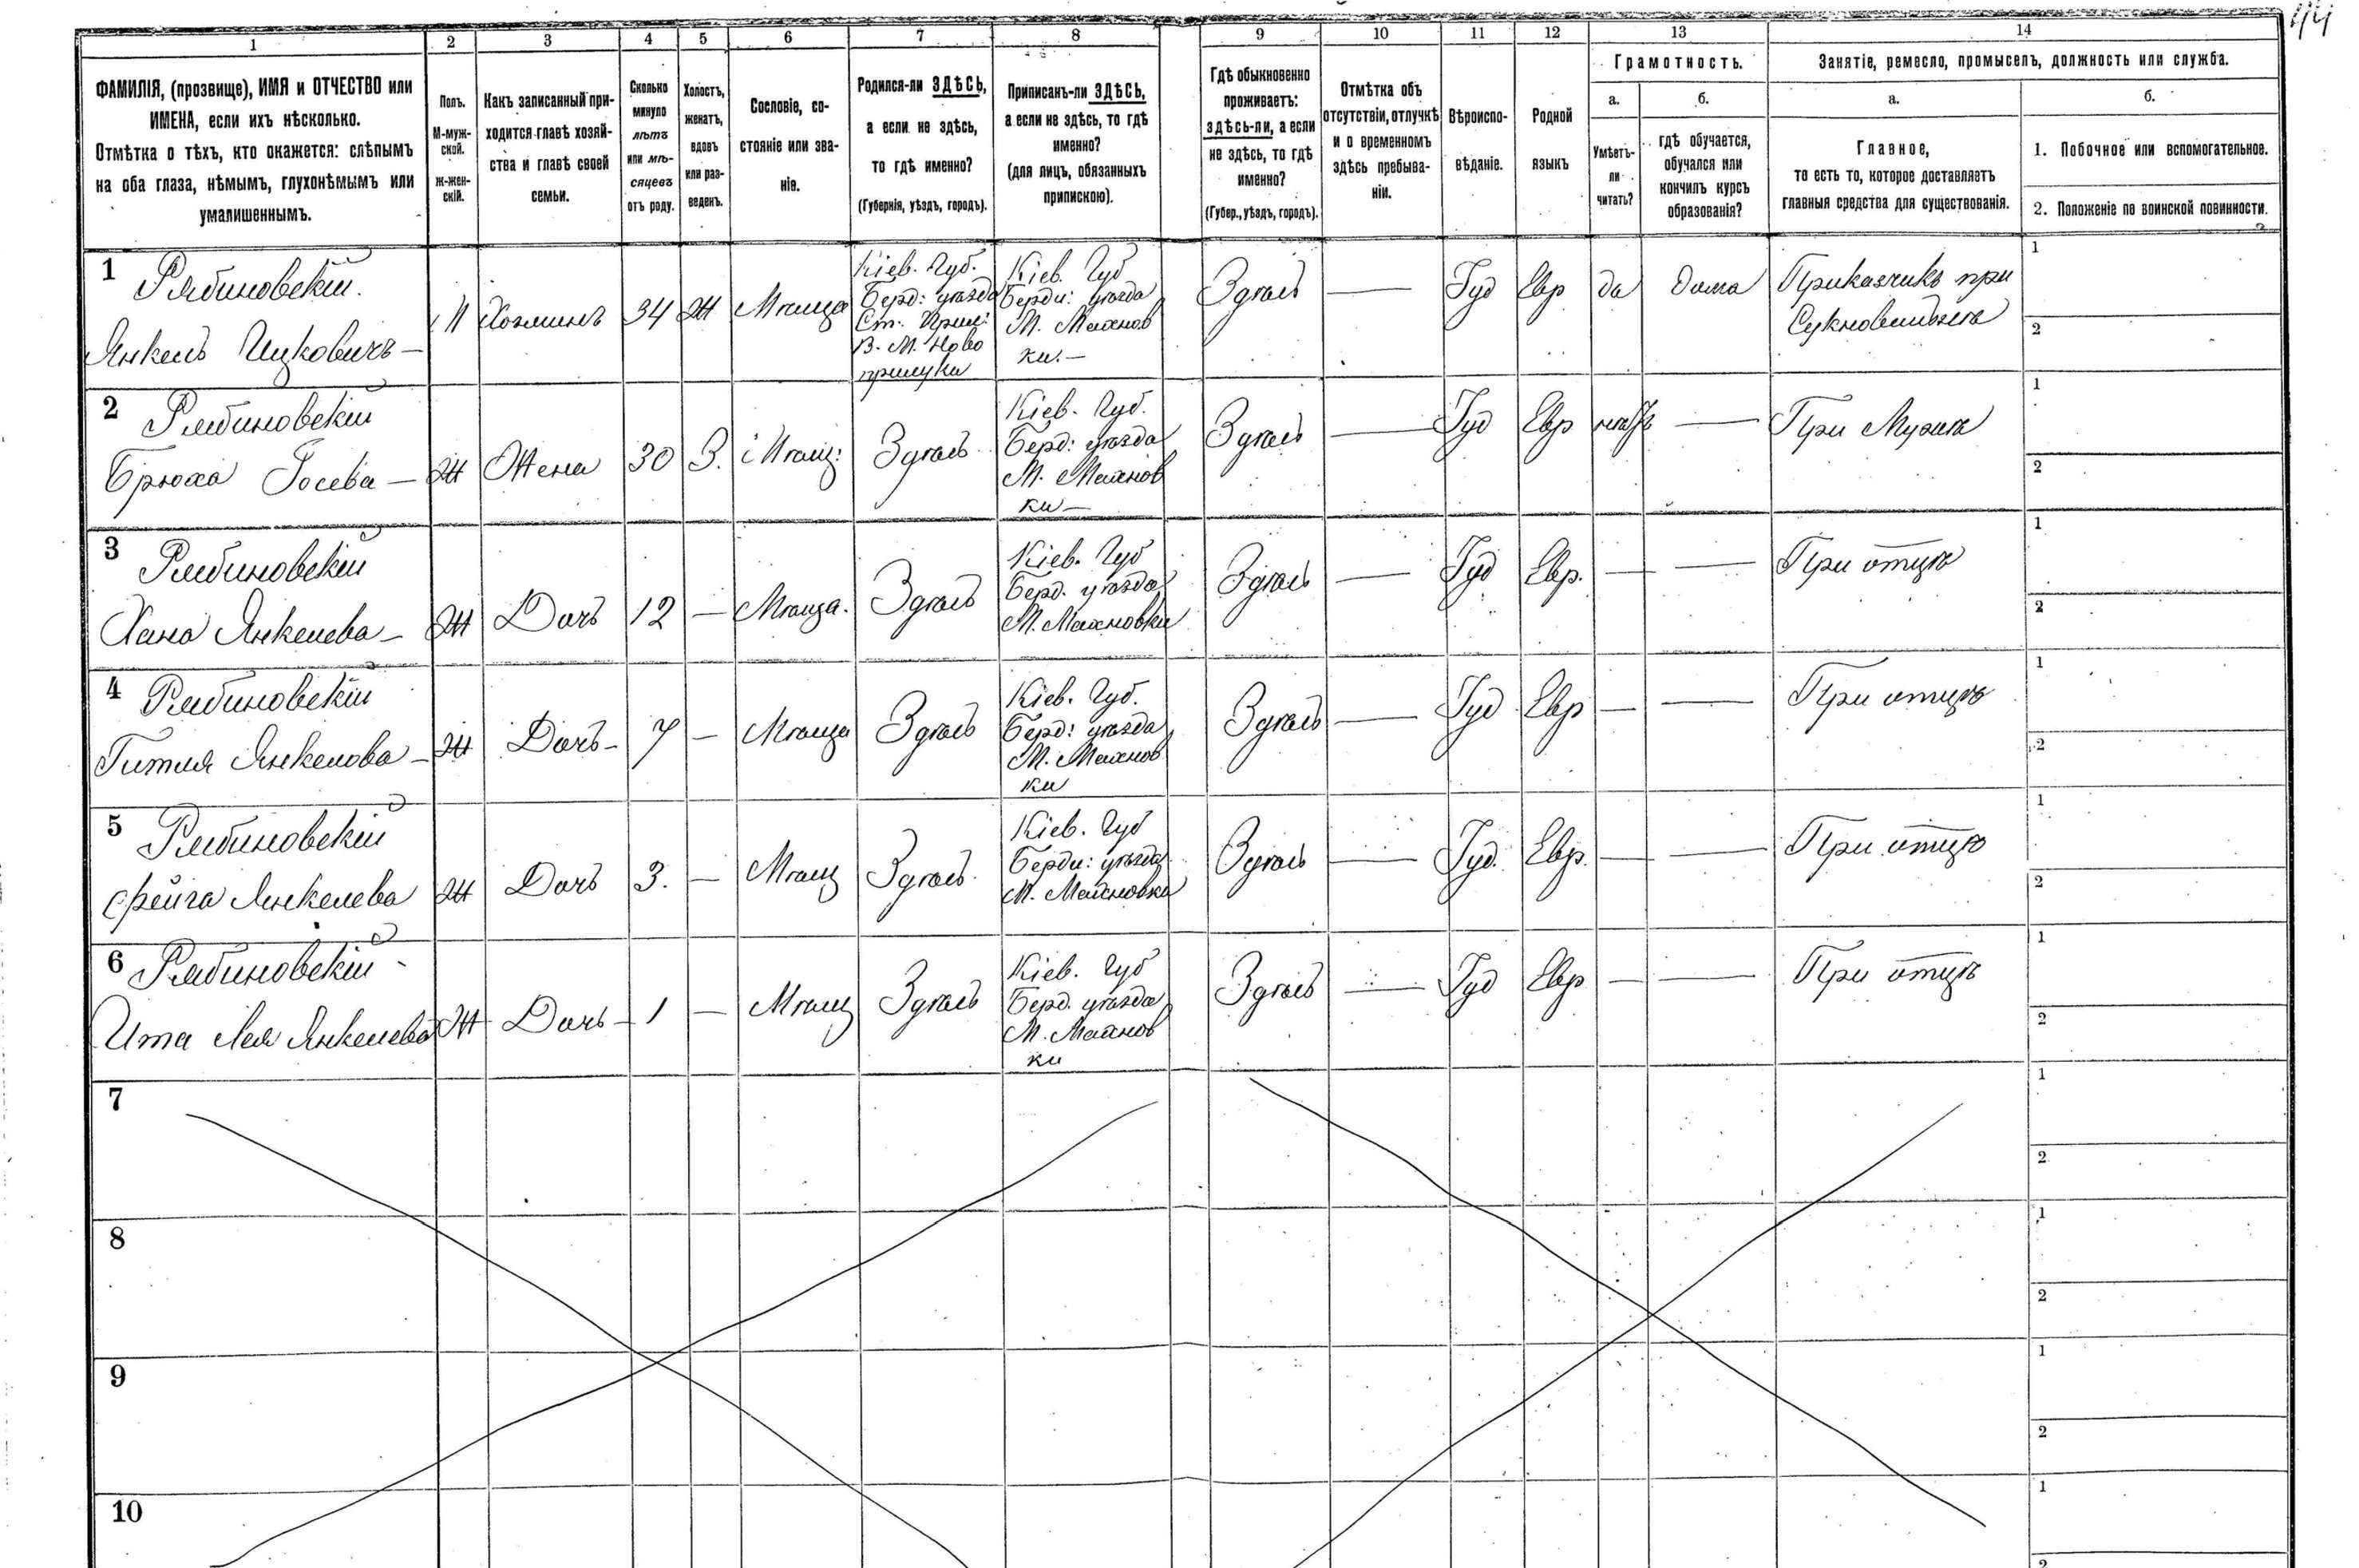 1 2 3 4 5 6 7 8 9 10 11 12 13 14
ФАМИЛІЯ, (прозвище), ИМЯ и ОТЧЕСТВО или
ИМЕНА, если ихъ нѣсколько.
Отмѣтка о тѣхъ, кто окажется: слѣпымъ
на оба глаза, нѣмымъ, глухонѣмымъ или
умалишеннымъ.
Полъ.
М-муж-
ской.
Ж-жен-
скій.
Какъ записанный при-
ходится главѣ хозяй-
ства и главѣ своей
семьи.
Сколько
минуло
лѣтъ
или мѣ-
сяцевъ
отъ роду.
Холостъ,
женатъ,
вдовъ
или раз-
веденъ.
Сословіе, со-
стояніе или зва-
ніе.
Родился-ли ЗДѢСЬ,
а если не здѣсь,
то гдѣ именно?
(Губернія, уѣздъ, городъ).
Приписанъ-ли ЗДѢСЬ,
а если не здѣсь, то гдѣ
именно?
(для лицъ, обязанныхъ
припискою).
Гдѣ обыкновенно
проживаетъ:
здѣсь-ли, а если
не здѣсь, то гдѣ
именно?
(Губер., уѣздъ, городъ).
Отмѣтка объ
отсутствіи, отлучкѣ
и о временномъ
здѣсь пребыва-
ніи.
Вѣроиспо-
вѣданіе.
Родной
языкъ
Грамотность.
а.
Умѣетъ-
ли
читать?
б.
гдѣ обучается,
обучался или
кончилъ курсъ
образованія?
Занятіе, ремесло, промыселъ, должность или служба.
а.
Главное,
то есть то, которое доставляетъ
главныя средства для существованія.
б.
1. Побочное или вспомогательное.
2. Положеніе по воинской повинности.
1
Рябиновскій.
Янкель Ицковичъ —
М
Хозяинъ
34
Ж
Мѣща
Кіев. Губ.
Берд: уѣзда
В. М. Ново
прилуки
Кіев. Губ
Берди: уѣзда
М. Махнов
ки. —
Здѣсь
—
Іуд
Евр
да
дома
Приказчикъ при
1
2
2
Рябиновскій
Брюха Іосева —
Ж
Жена
30
З.
Мѣщ:
Здѣсь
Кіев. Губ.
Берд: уѣзда
М. Махнов
ки —
Здѣсь
—
Іуд
Евр
нѣтъ
—
При Мужѣ
1
2
3
Рябиновскій
Хана Янкелева —
Ж
Дочь
12
—
Мѣща.
Здѣсь
Кіев. Губ
Берд. уѣзда
М. Махновки
Здѣсь
—
Іуд
Евр.
—
—
При отцѣ
1
2
4
Рябиновскій
Гитля Янкелова —
Ж
Дочь —
7
—
Мѣща
Здѣсь
Кіев. Губ.
Берд: уѣзда
М. Махнов
ки
Здѣсь
—
Іуд
Евр
—
—
При отцѣ
1
2
5
Рябиновскій
Фейга Янкелева
Ж
Дочь
3.
—
Мѣщ
Здѣсь
Кіев. Губ
Берди: уѣзда
М. Махновка
Здѣсь
—
Іуд.
Евр.
—
—
При отцѣ
1
2
6
Рябиновскій -
Ита Лея Янкелева
Ж
Дочь —
1
—
Мѣщ
Здѣсь
Кіев. Губ
Берд. уѣзда
М. Махнов
ки
Здѣсь
—
Іуд
Евр
—
—
При отцѣ
1
2
7
1
2
8
1
2
9
1
2
10
1
2